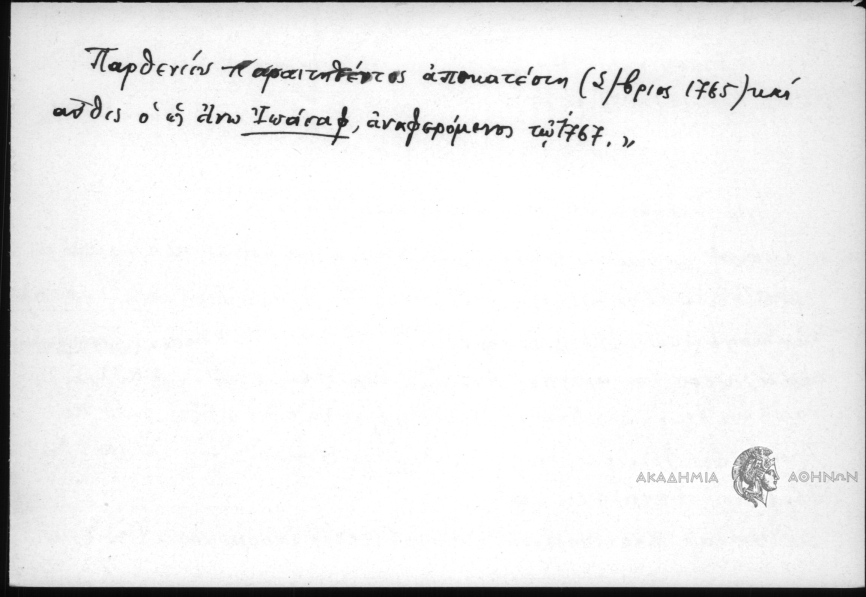 Παρθενίου παραιτηθέντος ἀποκατέστη (Σ/βριος 1765) καί
αὖθις ὁ ὡς ἄνω Ἰωάσαφ, ἀναφερόμενος τῷ 1767.»
ΑΚΑΔΗΜΙΑ ΑΘΗΝΩΝ